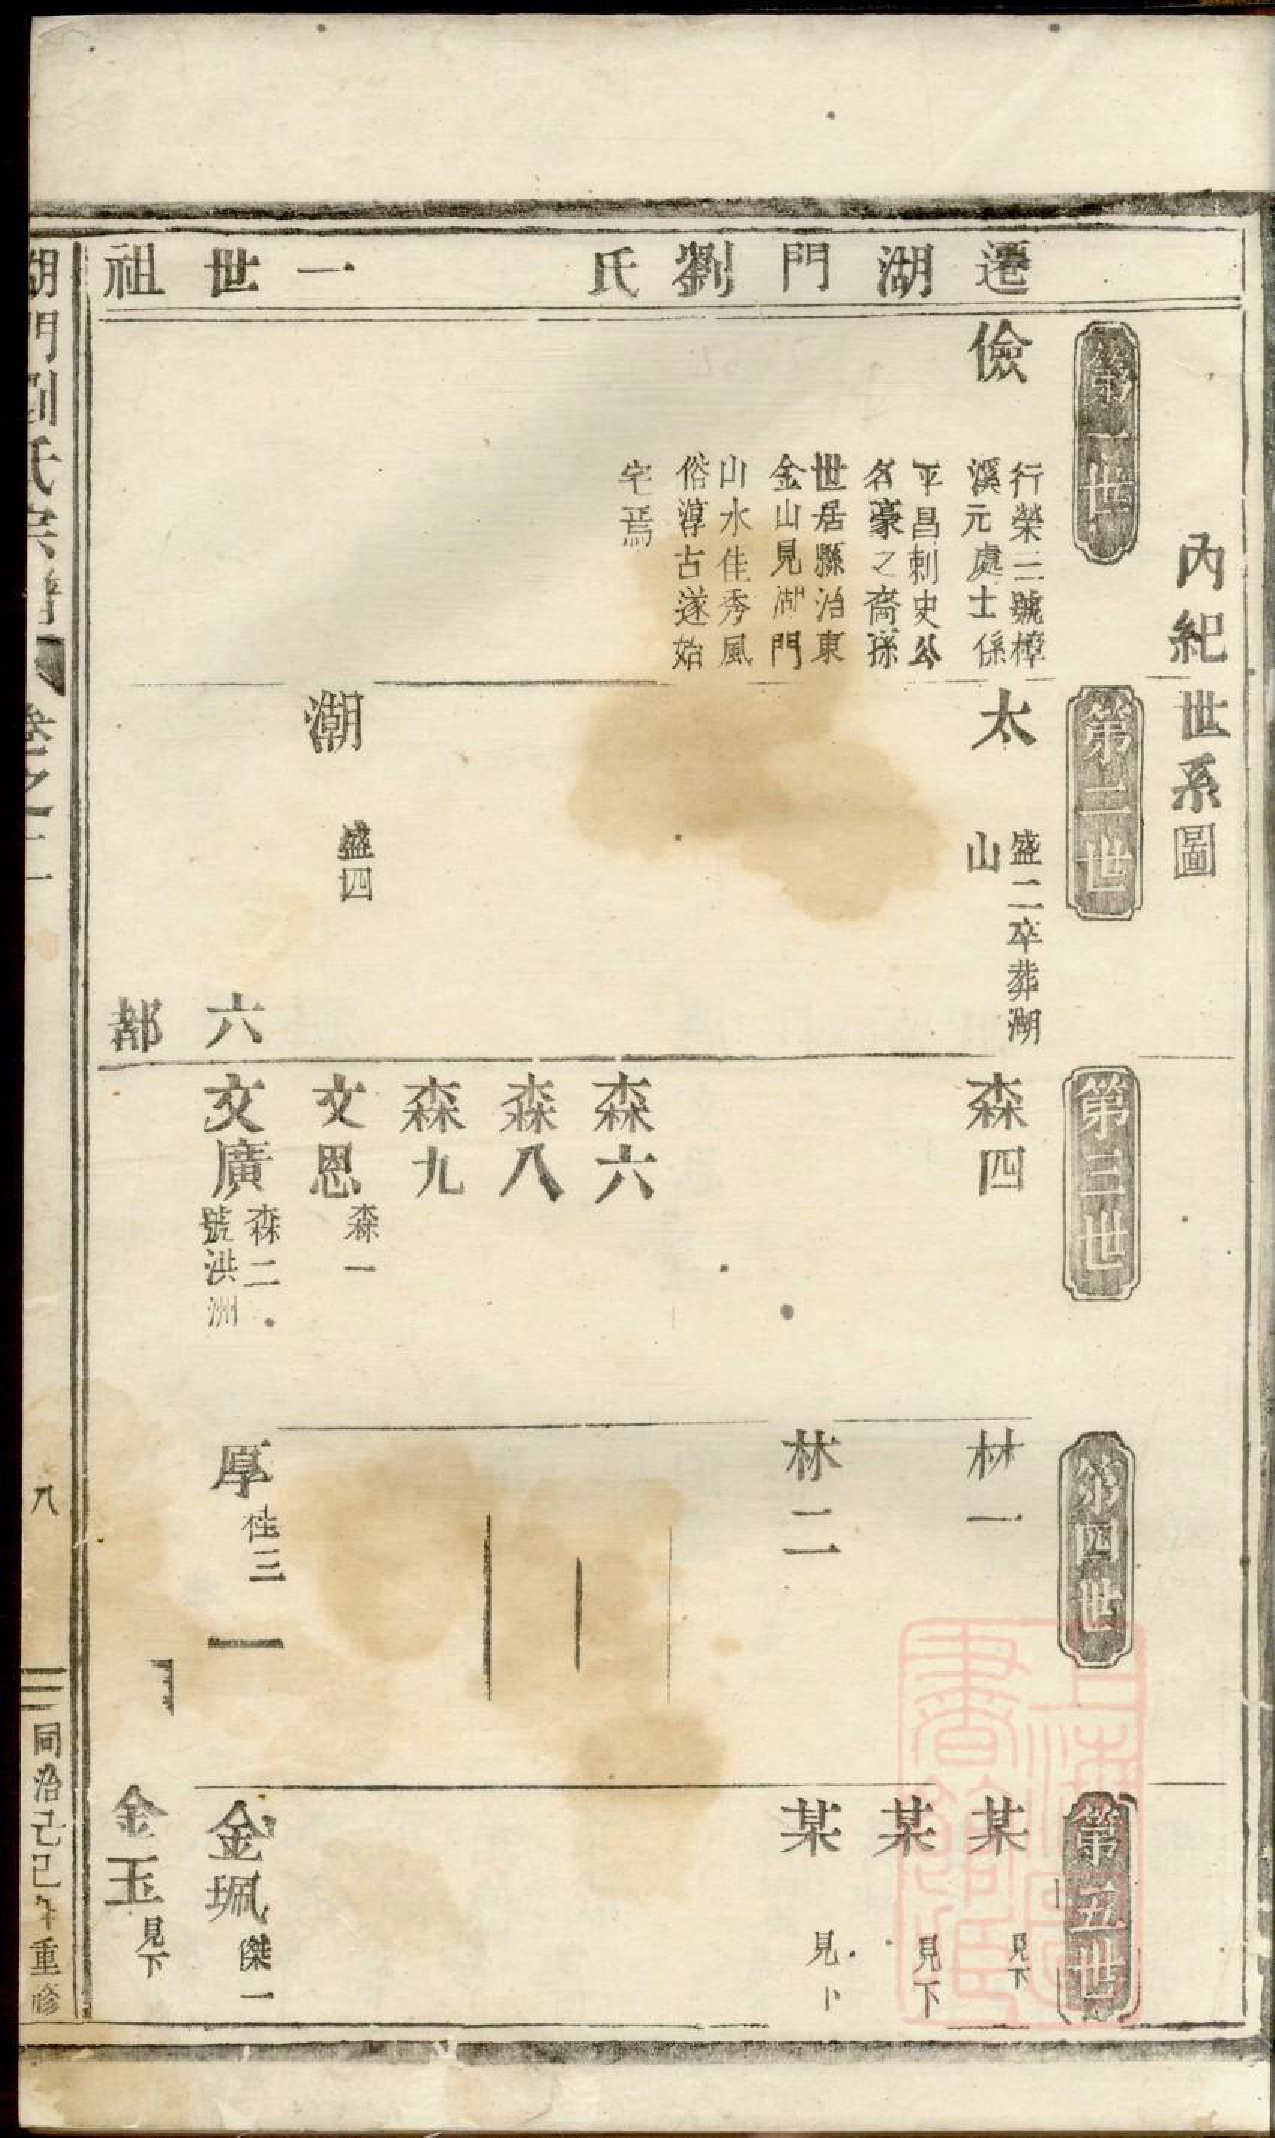 內紀世系圖
遷湖門劉氏一世祖
第一世
儉
行榮三號樟
溪元處士係
平昌刺史公
名豪之裔孫
世居縣治東
金山見湖門
山水佳秀風
俗淳古遂始
宅焉
第二世
太
盛二卒葬湖
山
潮
盛四
六都
第三世
森四
森六
森八
森九
文恩
森一
文廣
森二
號洪洲
第四世
林一
林二
厚
桂三
第五世
某
見下
某
見下
某
見
金珮
傑一
金玉
見下
湖門劉氏宗譜
卷之二
八
同治己巳年重修
上海圖書館藏